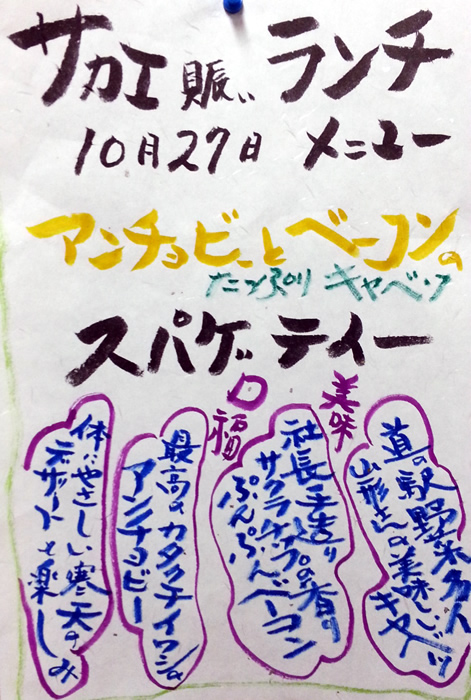 サカエ賑い ランチ
10月27日 メニュー
アンチョビーとベーコンの
たっぷり キャベツ
スパゲティー
美味
口福
道の駅野菜名人
山形さんの美味しいキャベツ
社長手造り
サクラチップの香り
ぷんぷんベーコン
最高のカタクチイワシの
アンチョビー
体にやさしい寒天の
デザートも楽しみ